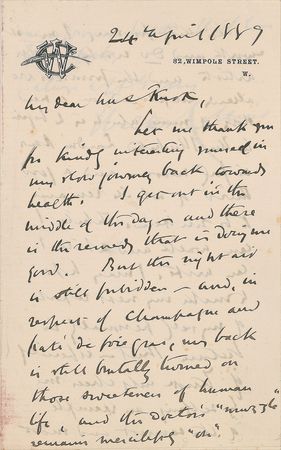 24th April 1889
82, WIMPOLE STREET.
W.
My dear
Let me thank you
for kindly interesting yourself in
my slow journey back towards
health. I get out in the
middle of the day – and there
is the remedy that is doing me
good. But the night air
is still forbidden – and, in
respect of Champagne and
Pâté de foie gras, my back
is still brutally turned on
those sweeteners of human
life, and the Doctor's "muzzle"
remains mercilessly "on".